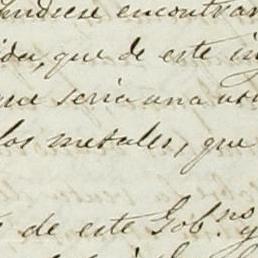 pudiese encontrar
ida, que de este in
que seria una
los metales, que
de este Gob.no y